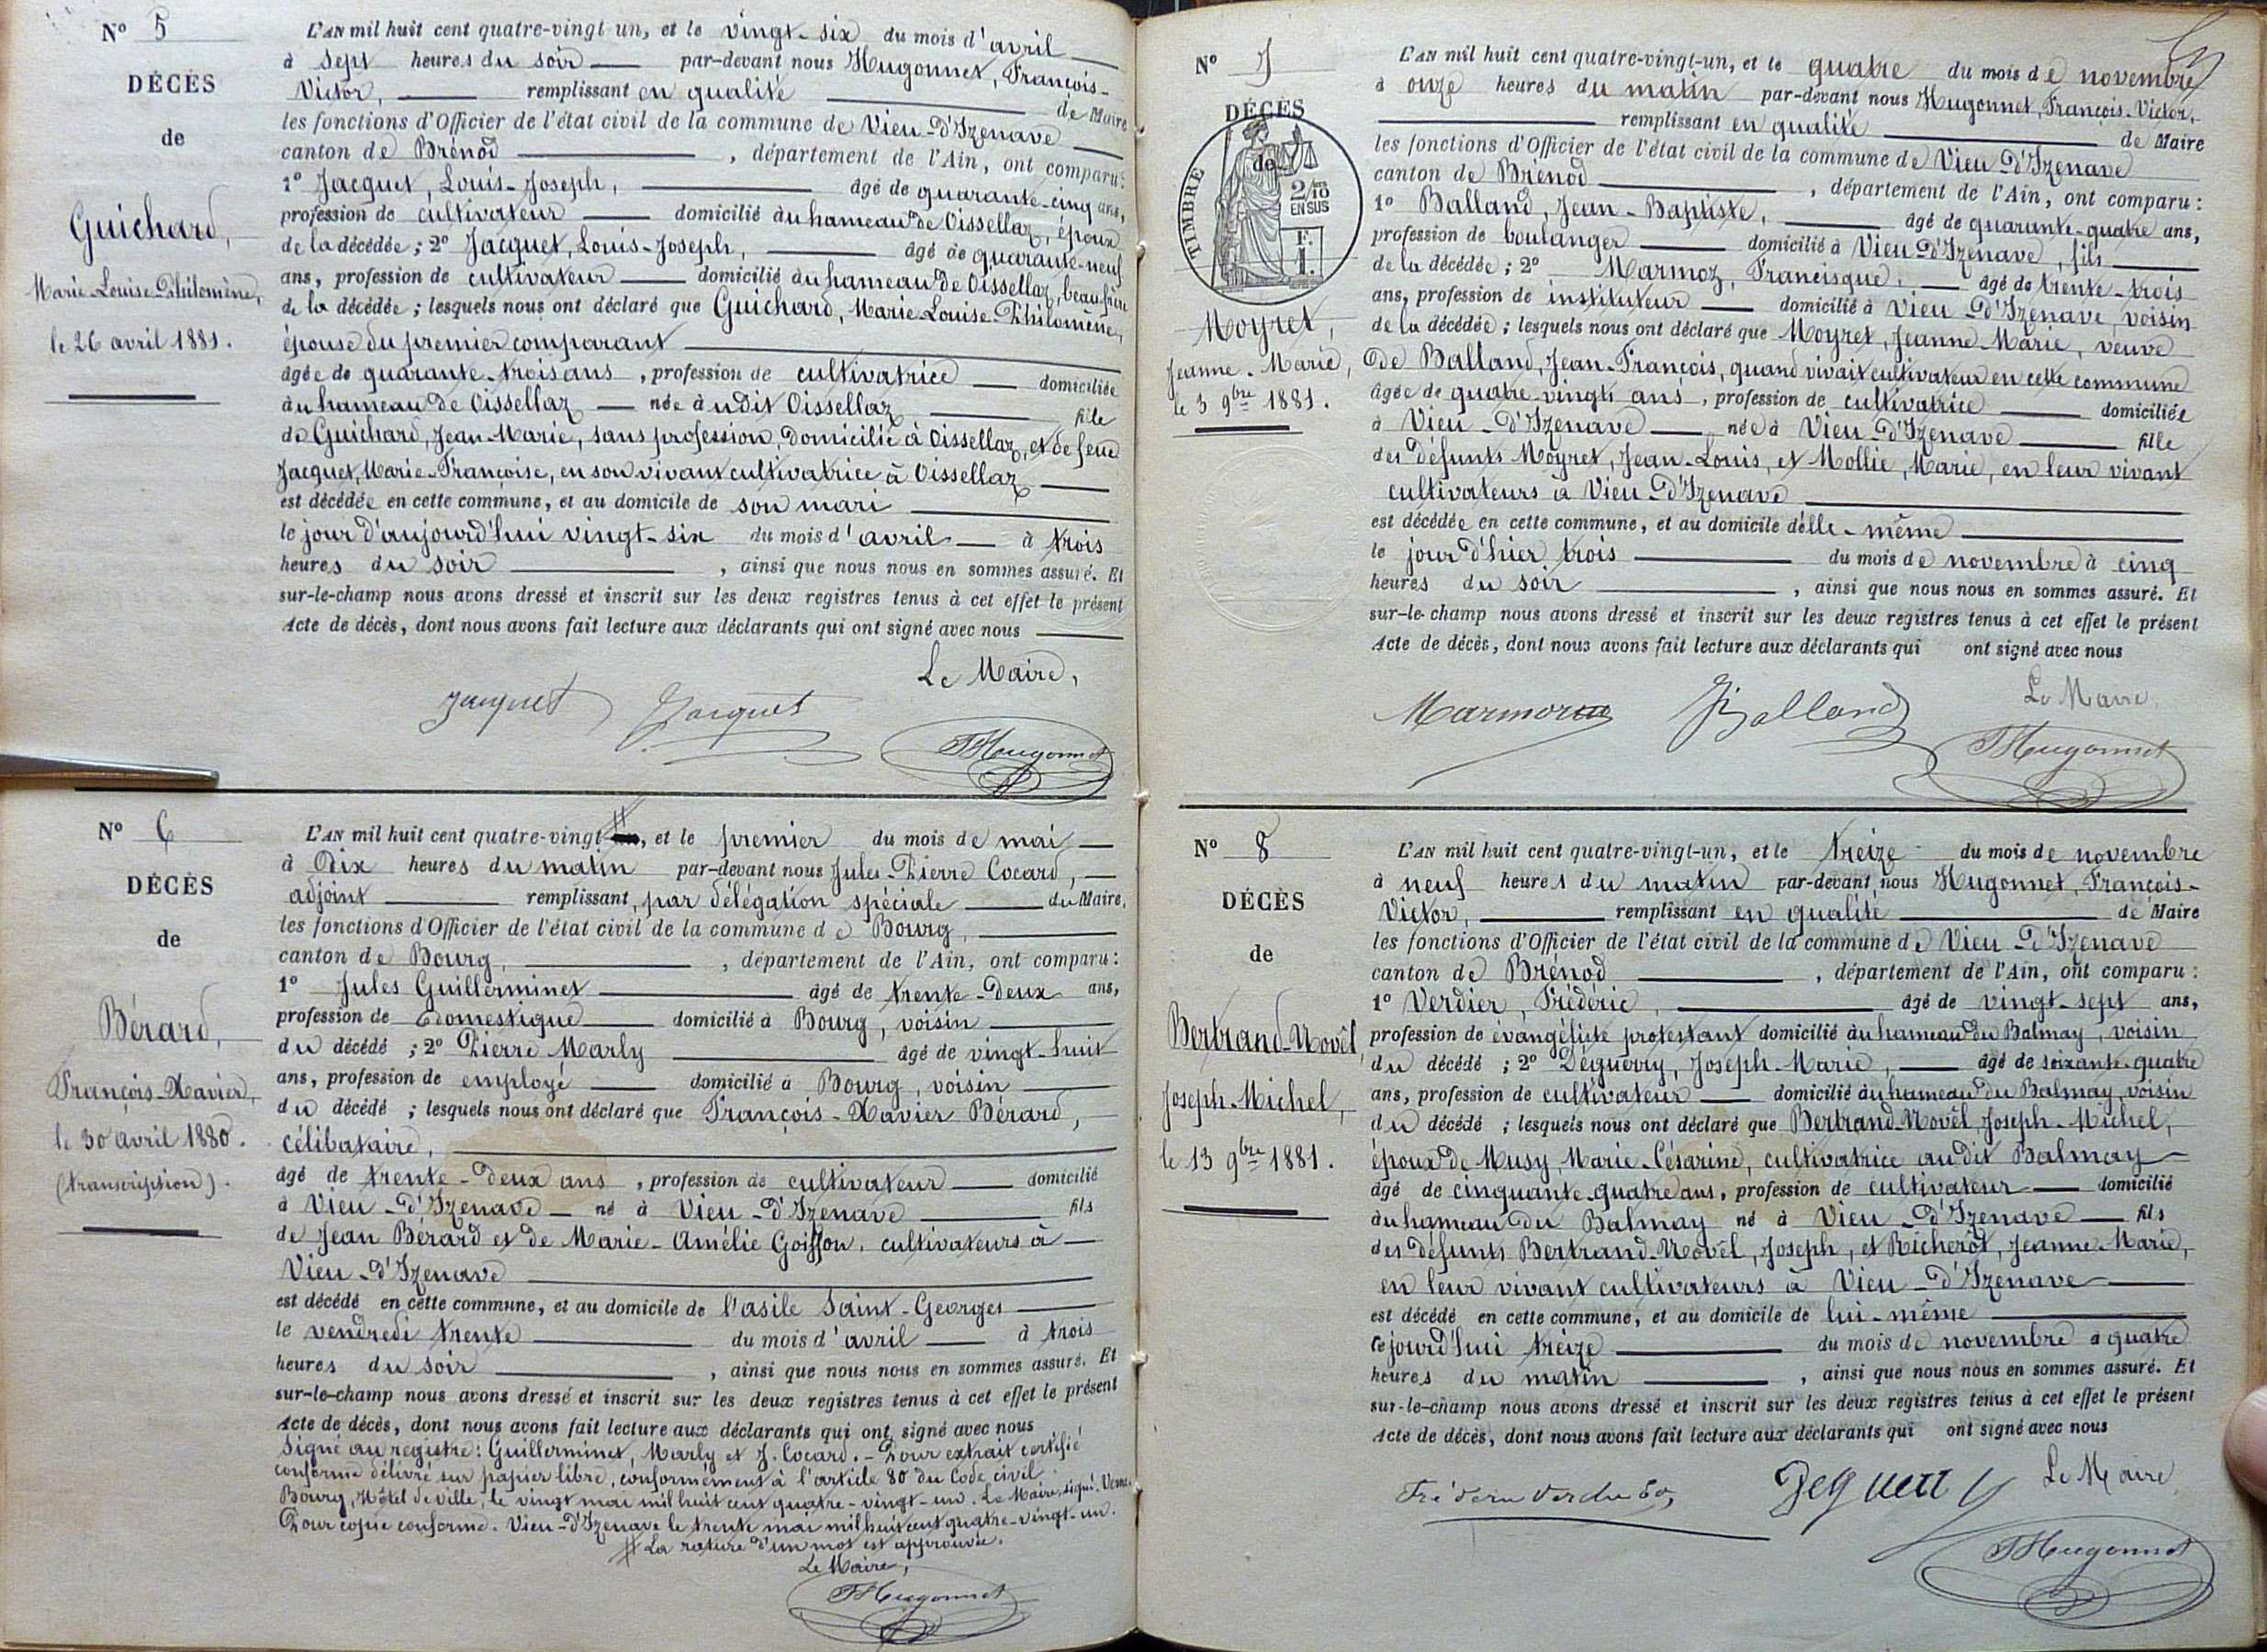 N° 5
DÉCÈS
de
Guichard,
Marie-Louise-Philomène,
le 26 avril 1881.
L'AN mil huit cent quatre-vingt un, et le vingt-six du mois d'avril
à sept heures du soir par-devant nous Hugonnet, François-
Victor, remplissant en qualité de Maire
les fonctions d'Officier de l'état civil de la commune de Vieu-d'Izenave
canton de Brénod, département de l'Ain, ont comparu:
1° Jacquet, Louis-Joseph, âgé de quarante-cinq ans,
profession de cultivateur domicilié au hameau de Oissellaz, époux
de la décédée; 2° Jacquet, Louis-Joseph, âgé de quarante-neuf
ans, profession de cultivateur domicilié au hameau de Oissellaz, beau-frère
de la décédée; lesquels nous ont déclaré que Guichard, Marie-Louise-Philomène,
épouse du premier comparant
âgée de quarante-trois ans, profession de cultivatrice domiciliée
au hameau de Oissellaz née audit Oissellaz fille
de Guichard, Jean-Marie, sans profession, domicilié à Oissellaz, et de feue
Jacquet, Marie-Françoise, en son vivant cultivatrice à Oissellaz
est décédée en cette commune, et au domicile de son mari
le jour d'aujourd'hui vingt-six du mois d'avril à trois
heures du soir, ainsi que nous nous en sommes assuré. Et
sur-le-champ nous avons dressé et inscrit sur les deux registres tenus à cet effet le présent
Acte de décès, dont nous avons fait lecture aux déclarants qui ont signé avec nous
Le Maire,
Jacquet Jacquet FHugonnet
N° 6
DÉCÈS
de
Bérard,
François-Xavier,
le 30 avril 1880.
(transcription).
L'AN mil huit cent quatre-vingt, et le premier du mois de mai
à dix heures du matin par-devant nous Jules-Pierre Cocard,
adjoint remplissant, par délégation spéciale du Maire,
les fonctions d'Officier de l'état civil de la commune de Bourg,
canton de Bourg, département de l'Ain, ont comparu:
1° Jules Guillerminet âgé de trente-deux ans,
profession de domestique domicilié à Bourg, voisin
du décédé; 2° Pierre Marly âgé de vingt-huit
ans, profession de employé domicilié à Bourg, voisin
du décédé; lesquels nous ont déclaré que François-Xavier Bérard,
célibataire,
âgé de trente-deux ans, profession de cultivateur domicilié
à Vieu-d'Izenave né à Vieu-d'Izenave fils
de Jean Bérard et de Marie-Amélie Goiffon, cultivateurs à
Vieu-d'Izenave
est décédé en cette commune, et au domicile de l'asile Saint-Georges
le vendredi trente du mois d'avril à trois
heures du soir, ainsi que nous nous en sommes assuré. Et
sur-le-champ nous avons dressé et inscrit sur les deux registres tenus à cet effet le présent
Acte de décès, dont nous avons fait lecture aux déclarants qui ont signé avec nous
Signé au registre: Guillerminet, Marly et J. Cocard. - Pour extrait certifié
conforme délivré sur papier libre, conformément à l'article 80 du Code civil.
Bourg, Hôtel de ville, le vingt mai mil huit cent quatre-vingt-un. Le Maire, signé:
Pour copie conforme. Vieu-d'Izenave le trente mai mil huit cent quatre-vingt-un.
# La rature d'un mot est approuvée.
Le Maire,
FHugonnet
N° 7
DÉCÈS
de
TIMBRE
2/10
EN SUS
F.
1.
Moyret,
Jeanne-Marie,
le 3 9bre 1881.
L'AN mil huit cent quatre-vingt-un, et le quatre du mois de novembre
à onze heures du matin par-devant nous Hugonnet, François-Victor,
remplissant en qualité de Maire
les fonctions d'Officier de l'état civil de la commune de Vieu-d'Izenave
canton de Brénod, département de l'Ain, ont comparu:
1° Balland, Jean-Baptiste, âgé de quarante-quatre ans,
profession de boulanger domicilié à Vieu-d'Izenave, fils
de la décédée; 2° Marmoz, Francisque, âgé de trente-trois
ans, profession de instituteur domicilié à Vieu-d'Izenave, voisin
de la décédée; lesquels nous ont déclaré que Moyret, Jeanne-Marie, veuve
de Balland, Jean-François, quand vivait cultivateur en cette commune
âgée de quatre-vingts ans, profession de cultivatrice domiciliée
à Vieu-d'Izenave née à Vieu-d'Izenave fille
des défunts Moyret, Jean-Louis, et Mollie, Marie, en leur vivant
cultivateurs à Vieu-d'Izenave
est décédée en cette commune, et au domicile d'elle-même
le jour d'hier trois du mois de novembre à cinq
heures du soir, ainsi que nous nous en sommes assuré. Et
sur-le-champ nous avons dressé et inscrit sur les deux registres tenus à cet effet le présent
Acte de décès, dont nous avons fait lecture aux déclarants qui ont signé avec nous
Le Maire,
Marmoz JBalland FHugonnet
N° 8
DÉCÈS
de
Bertrand-Novêl,
Joseph-Michel,
le 13 9bre 1881.
L'AN mil huit cent quatre-vingt-un, et le treize du mois de novembre
à neuf heures du matin par-devant nous Hugonnet, François-
Victor, remplissant en qualité de Maire
les fonctions d'Officier de l'état civil de la commune de Vieu-d'Izenave
canton de Brénod, département de l'Ain, ont comparu:
1° Verdier, Frédéric, âgé de vingt-sept ans,
profession de évangéliste protestant domicilié au hameau du Balmay, voisin
du décédé; 2° Déguerry, Joseph-Marie, âgé de soixante-quatre
ans, profession de cultivateur domicilié au hameau du Balmay, voisin
du décédé; lesquels nous ont déclaré que Bertrand-Novêl, Joseph-Michel,
époux de Musy, Marie-Césarine, cultivatrice audit Balmay
âgé de cinquante-quatre ans, profession de cultivateur domicilié
au hameau du Balmay né à Vieu-d'Izenave fils
des défunts Bertrand-Novêl, Joseph, et Richerot, Jeanne-Marie,
en leur vivant cultivateurs à Vieu-d'Izenave
est décédé en cette commune, et au domicile de lui-même
cejourd'hui treize du mois de novembre à quatre
heures du matin, ainsi que nous nous en sommes assuré. Et
sur-le-champ nous avons dressé et inscrit sur les deux registres tenus à cet effet le présent
Acte de décès, dont nous avons fait lecture aux déclarants qui ont signé avec nous
Le Maire
FHugonnet